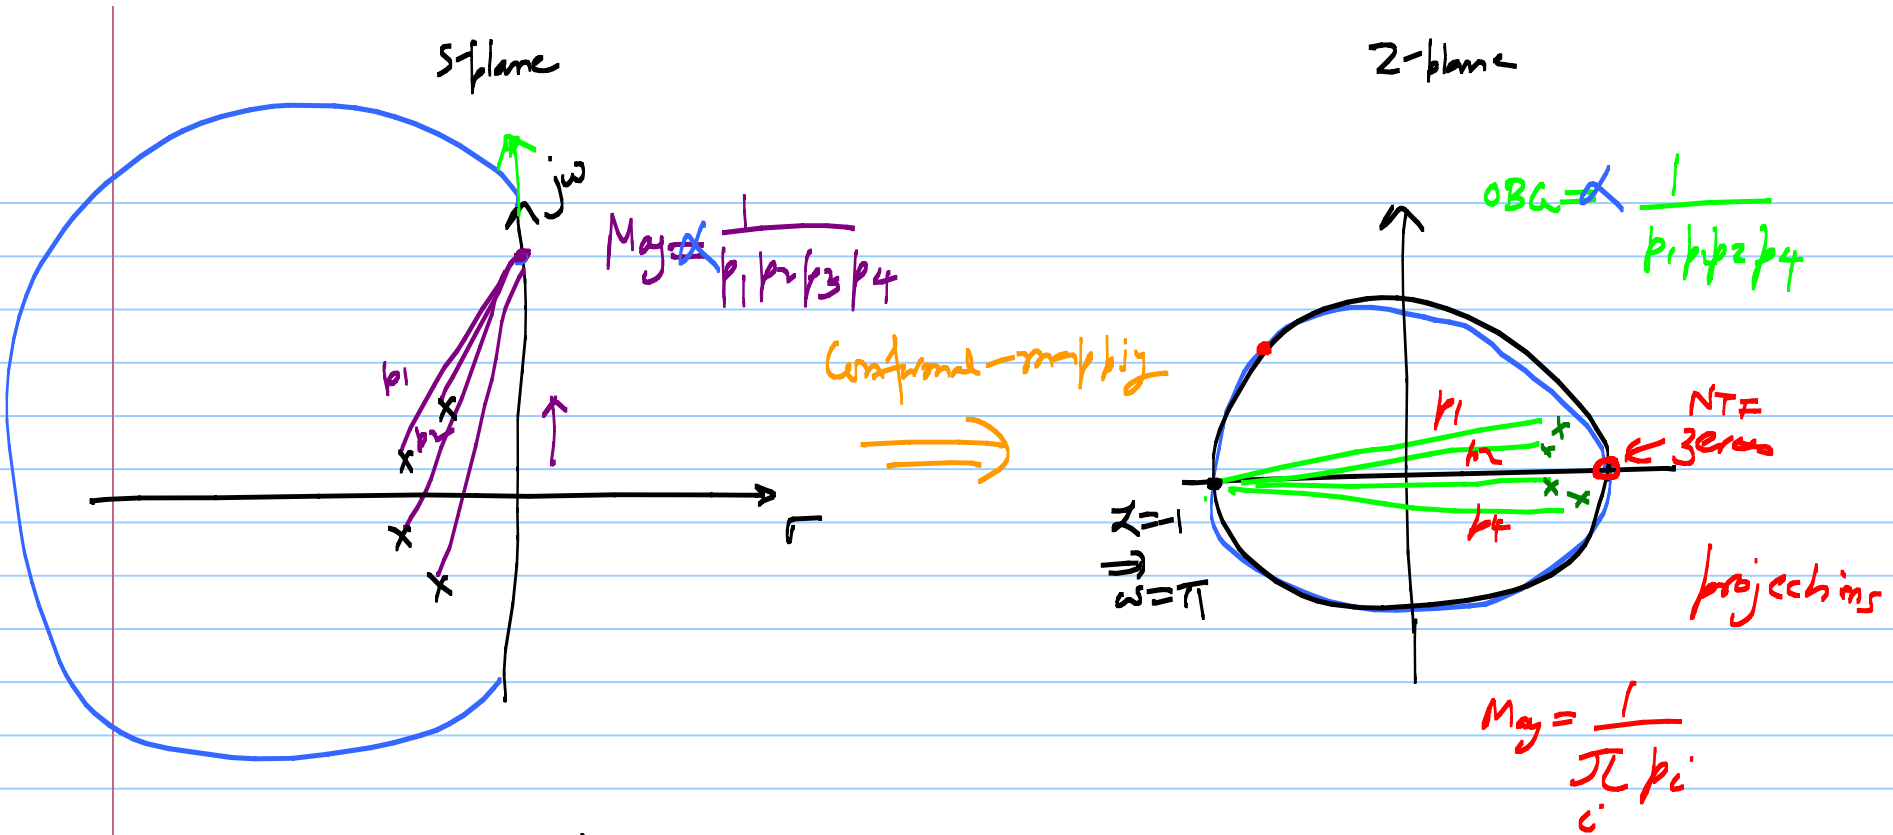 S-plane
jω
Mag ∝ 1 / p1 p2 p3 p4
p1
p2
σ
Conformal-mapping
⇒
Z-plane
OBG ∝ 1 / p1 p2 p4
p1
p2
p4
NTF
zeros
Z=-1
⇒
ω=π
projections
Mag = 1 / π pi
i